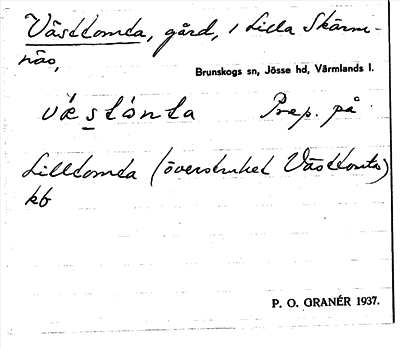 Västtomta, gård, i Lilla Skärm-
näs,
Brunskogs sn, Jösse hd, Värmlands l.
Prep. på
Lilltomta (överstruket Västtomta)
kb
P. O. GRANÉR 1937.